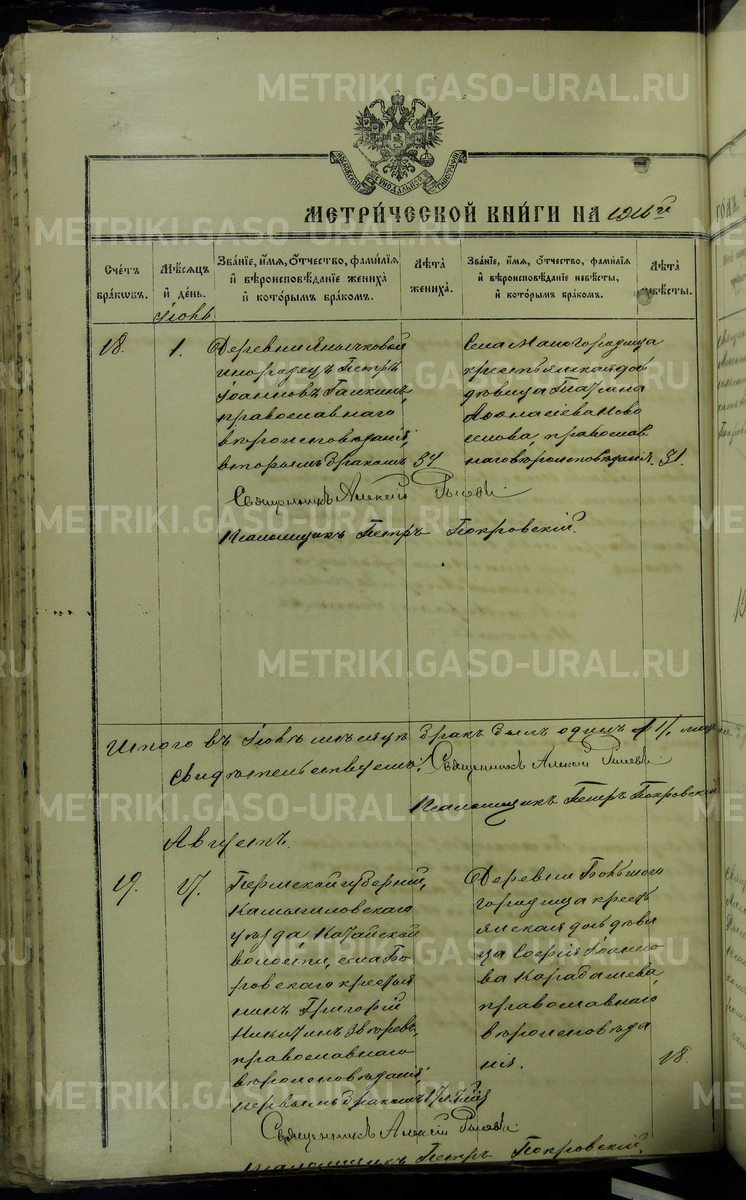 METRIKI.GASO-URAL.RU
МЕТРИ́ЧЕСКОЙ КНИ́ГИ НА 1916й
ГОДЪ
Сче́тъ бра́ковъ.
Мѣ́сяцъ и де́нь.
Зва́нїе, и́мя, ѻ́тчество, фами́лїя и вѣроисповѣ́данїе жениха̀ и кото́рымъ бра́комъ.
Лѣ́та жениха̀.
Зва́нїе, и́мя, ѻ́тчество, фами́лїя и вѣроисповѣ́данїе невѣ́сты, и кото́рымъ бра́комъ.
Лѣ́та невѣ́сты.
18.
1.
Деревни
инородецъ Петръ
Іоанновъ Галкинъ,
православнаго
вѣроисповѣданія,
вторымъ бракомъ
37
Села Малогородища
крестьянская дочь
дѣвица Татiана
Аѳанасіева Ново
селова, православ
наго вѣроисповѣданія.
31.
Священникъ Алексій
Псаломщикъ Петръ Покровскій.
Итого въ мѣсяцѣ бракъ былъ одинъ /1/
свидѣтельствуемъ: Священникъ Алексій
Псаломщикъ Петръ Покровскій
Августъ.
19.
17.
Пермской губерніи,
Камышловскаго
уѣзда Катайской
волости, села Бо
ровскаго крестья
нинъ Григорій
Никитинъ Звѣревъ,
православнаго
вѣроисповѣданія,
первымъ бракомъ
Деревни Больш
городища кресть
янская дочь дѣви
ца Софія Іоанно
ва Карабашева,
православнаго
вѣроисповѣда
нія.
18.
Священникъ Алексій
Псаломщикъ Петръ Покровскій.